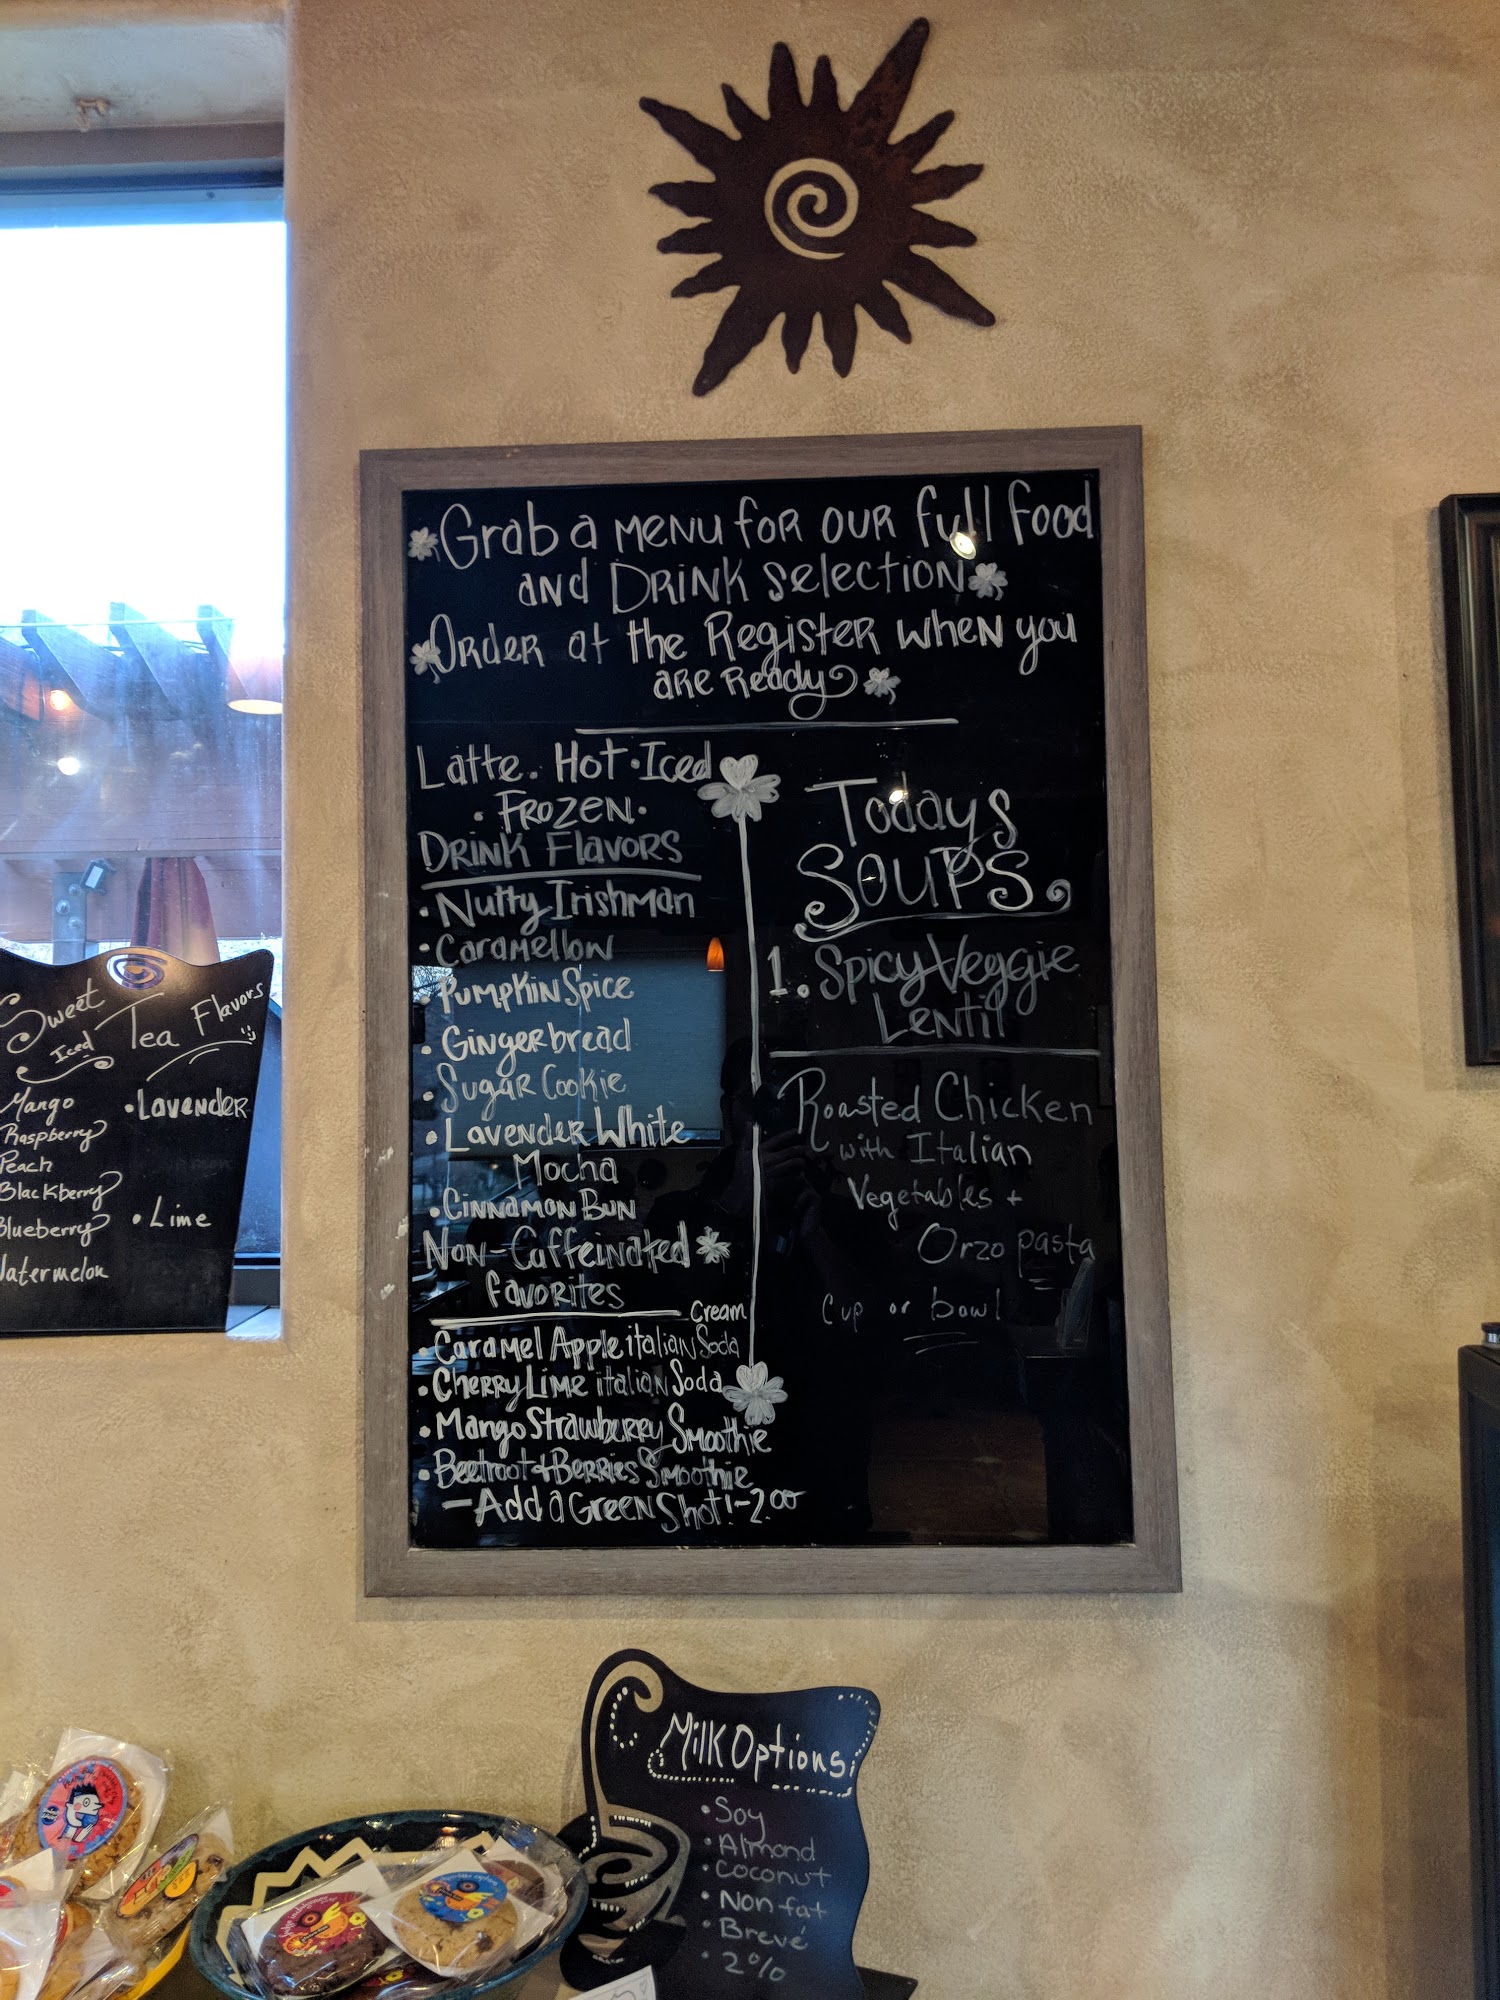 Grab a MENU for our full food
and Drink selection
Order at the Register when you
are ready
Latte. Hot • Iced
• Frozen •
Drink Flavors
• Nutty Irishman
• Caramellow
• Pumpkin Spice
• Gingerbread
• Sugar Cookie
• Lavender White
Mocha
• Cinnamon Bun
Non-Caffeinated
favorites
Cream
• Caramel Apple italian Soda
• Cherry Lime italian Soda
• Mango Strawberry Smoothie
• Beetroot + Berries Smoothie
- Add a Green Shot! - 2.00
Todays
Soups
1. Spicy Veggie
Lentil
Roasted Chicken
with Italian
Vegetables +
Orzo pasta
Cup or bowl
Sweet
Iced Tea Flavors
Mango
Raspberry
Peach
Blackberry
Blueberry
Watermelon
• Lavender
• Lime
Milk Options:
• Soy
• Almond
• Coconut
• Nonfat
• Brevé
• 2%